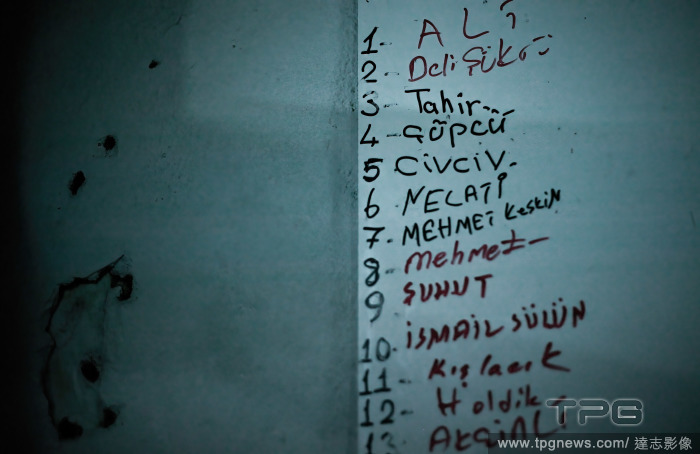 1- ALİ
2- Deli Şükrü
3- Tahir-
4- ÇÖPCÜ
5 CİVCİV-
6 NECATİ
7- MEHMET Keskin
8- Mehmet-
9 ŞUHUT
10- İSMAİL SÜLÜN
11- Kışlacık
12- Holdik
13-
TPG
www.tpgnews.com/ 達志影像